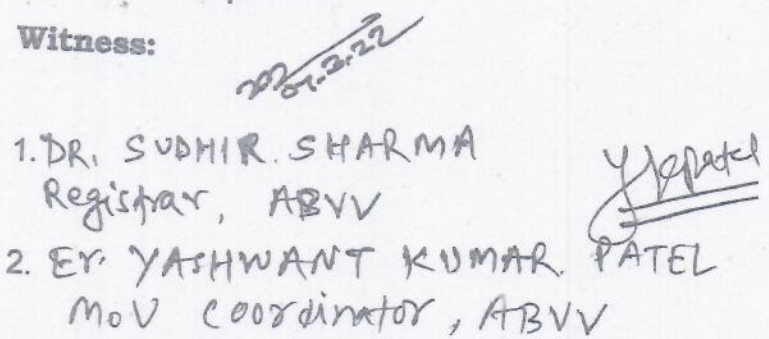 Witness:
07.2.22
1. DR. SUDHIR. SHARMA
Registrar, ABVV
Ykpatel
2. Er. YASHWANT KUMAR. PATEL
MoU Coordinator, ABVV